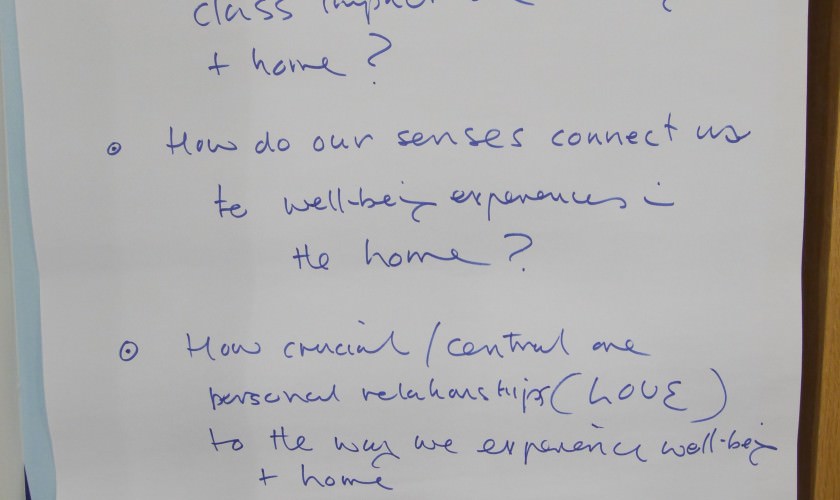 class impact
+ home?
How do our senses connect us
to well-being experiences in
the home?
How crucial / central are
personal relationships (LOVE)
to the way we experience well-being
+ home